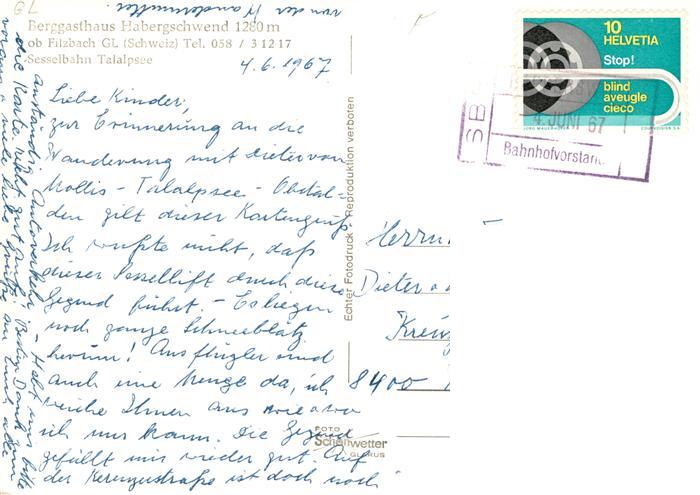 GL
Berggasthaus Habergschwend 1280 m
ob Filzbach GL (Schweiz) Tel. 058 / 3 12 17
Sesselbahn Talalpsee
4.6.1967
Liebe Kinder,
zur Erinnerung an die
Wanderung mit Dieter von
Mollis - Talalpsee - Obstal-
den gilt dieser Kartengruß
Ich wußte nicht, daß
dieser Sessellift durch diese
Gegend führt. - Es liegen
noch ganze Schneeblätz
herum! Ausflügler sind
auch eine Menge da, ich
weiche Ihnen aus wie
ich nur kann. Die Gegend
gefällt mir wieder gut. Auf
der Kerenzerstraße ist doch noch
anständig Autoverkehr
Echter Fotodruck - Reproduktion verboten
FOTO
Schönwetter
GLARUS
10
HELVETIA
Stop!
blind
aveugle
cieco
COURVOISIER S.A.
SB
4. JUNI 67
Bahnhofvorstand
Herrn
Dieter
Kreuz
8400